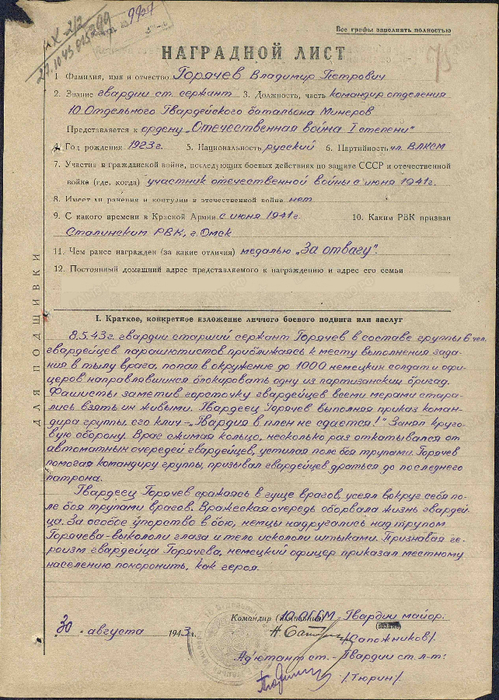 Все графы заполнять полностью
НАГРАДНОЙ ЛИСТ
75
1. Фамилия, имя и отчество Горячев Владимир Петрович
2. Звание гвардии ст. сержант 3. Должность, часть командир отделения
10 Отдельного Гвардейского батальона Минеров
Представляется к ордену „Отечественная война I степени"
4. Год рождения 1923г. 5. Национальность русский 6. Партийность чл. ВЛКСМ
7. Участие в гражданской войне, последующих боевых действиях по защите СССР и отечественной
войне (где, когда) участник отечественной войны с июня 1941г.
8. Имеет ли ранения и контузии в отечественной войне нет
9. С какого времени в Красной Армии с июня 1941г. 10. Каким РВК призван
Сталинским РВК, г. Омск
11. Чем ранее награжден (за какие отличия) медалью „За отвагу".
12. Постоянный домашний адрес представляемого к награждению и адрес его семьи
ДЛЯ ПОДШИВКИ
I. Краткое, конкретное изложение личного боевого подвига или заслуг
8.5.43г гвардии старший сержант Горячев в составе группы 6 чел.
гвардейцев парашютистов приближаясь к месту выполнения зада-
ния в тылу врага, попал в окружение до 1000 немецких солдат и офи-
церов направлявшихся блокировать одну из партизанских бригад.
Фашисты заметив горсточку гвардейцев всеми мерами стара-
лись взять их живыми. Гвардеец Горячев выполняя приказ коман-
дира группы, его клич-„Гвардия в плен не сдается!" Занял круго-
вую оборону. Враг сжимая кольцо, несколько раз откатывался от
автоматных очередей гвардейцев, устилая поле боя трупами. Горячев
помогая командиру группы, призывал гвардейцев драться до последнего
патрона.
Гвардеец Горячев сражаясь в гуще врагов усеял вокруг себя по-
ле боя трупами врагов. Вражеская очередь оборвала жизнь гвардей-
ца. За особое упорство в бою, немцы надругались над трупом
Горячева-выкололи глаза и тело искололи штыками. Признавая ге-
роизм гвардейца Горячева, немецкий офицер приказал местному
населению похоронить, как героя.
Командир (начальник) 10 ОГБМ Гвардии майор.
/Сапожников/.
30 августа 1943г.
Ад'ютант ст.-Гвардии ст. л-т:
/Тюрин/